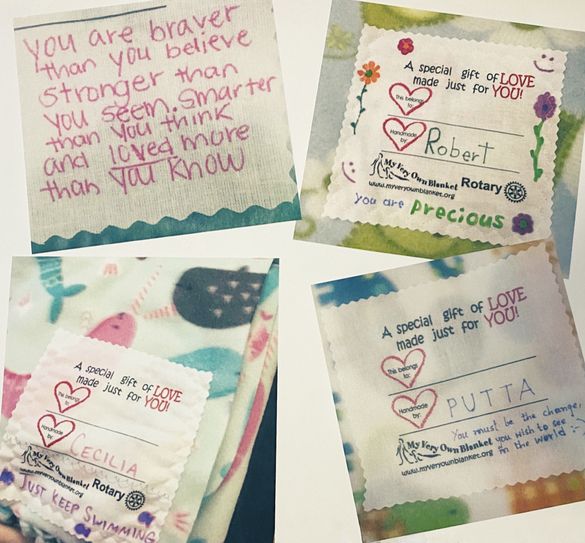 you are braver
than you believe
stronger than
you seem. smarter
than you think
and loved more
than you know
A special gift of LOVE
made just for YOU!
This belongs
to:
Handmade
by:
Robert
My Very Own Blanket
Rotary
www.myveryownblanket.org
you are precious
A special gift of LOVE
made just for YOU!
This belongs
to:
Handmade
by:
CECILIA
My Very Own Blanket
www.myveryownblanket.org
Rotary
JUST KEEP SWIMMING
A special gift of LOVE
made just for YOU!
This belongs
to:
Handmade
by:
PUTTA
You must be the change,
My Very Own Blanket you wish to see
www.myveryownblanket.org in the world